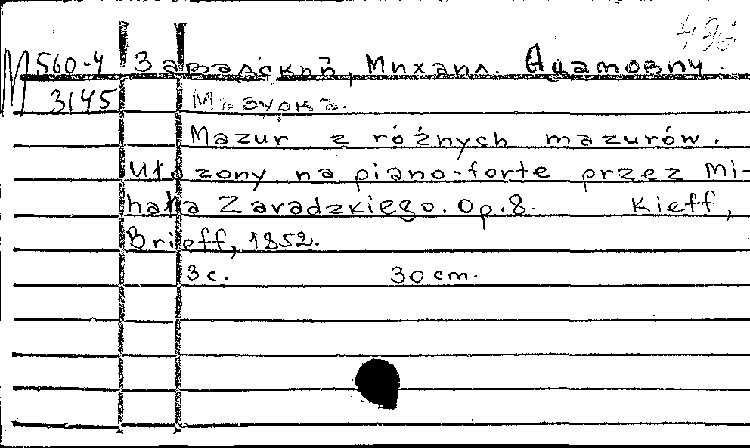 496
М 560-4 Завадский, Михаил Адамович.
3145 Мазурка.
Mazur z różnych mazurów.
Ułozony na piano-forte przez Mi-
hała Zavadzkiego. Op. 8. Kieff,
Brieff, 1852.
3 с. 30 cm.